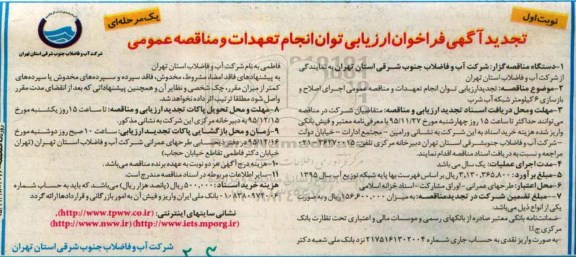 نوبت اول
یک مرحله‌ای
شرکت آب و فاضلاب جنوب شرقی استان تهران
تجدید آگهی فراخوان ارزیابی توان انجام تعهدات و مناقصه عمومی
۱-دستگاه مناقصه‌گزار: شرکت آب و فاضلاب جنوب شرقی استان تهران به نمایندگی
از شرکت آب و فاضلاب استان تهران
۲-موضوع مناقصه: تجدید ارزیابی توان انجام تعهدات و مناقصه عمومی اجرای اصلاح و
بازسازی ۶ کیلومتر شبکه آب شرب
۳-مهلت و محل دریافت اسناد تجدید ارزیابی و مناقصه: متقاضیان شرکت در مناقصه
می‌توانند حداکثر تا ساعت ۱۵ روز چهارشنبه مورخ ۹۵/۱۱/۲۷ با معرفی‌نامه معتبر و فیش بانکی
واریز شده هزینه خرید اسناد به این شرکت به نشانی ورامین - مجتمع ادارات - خیابان دولت
- شرکت آب و فاضلاب جنوبشرقی استان تهران دبیرخانه مرکزی
مراجعه و نسبت به دریافت اسناد مناقصه اقدام نمایند
۴-مدت اجرای عملیات: یک سال می‌باشد
۵-مبلغ برآورد: ۳،۱۳۰،۳۶۵،۸۰۰ ریال بر اساس فهرست بها پایه شبکه توزیع آب سال ۱۳۹۵
۶-محل اعتبار: طرحهای عمرانی - اوراق مشارکت - اسناد خزانه اسلامی
۷-مبلغ تضمین شرکت در تجدید مناقصه: به میزان ۱۵۶،۶۰۰،۰۰۰ ریال و به صورت
یکی از انواع ذیل می‌باشد:
-ضمانت‌نامه بانکی معتبر صادره از بانکهای رسمی و موسسات مالی و اعتباری تحت نظارت بانک
مرکزی ج.ا.ا
-به صورت واریز نقدی به حساب جاری شماره ۲۱۷۵۱۶۱۳۰۲۰۰۴ نزد بانک ملی شعبه دکتر
فاطمی به نام شرکت آب و فاضلاب استان تهران
به پیشنهادهای فاقد امضاء، مشروط، مخدوش، فاقد سپرده و سپرده‌های مخدوش یا سپرده‌های
کمتر از میزان مقرر، چک شخصی و نظایر آن و همچنین پیشنهاداتی که بعد از انقضای مدت مقرر
واصل شود مطلقا ترتیب اثر داده نخواهد شد.
۸-مهلت و محل تحویل پاکات تجدید ارزیابی و مناقصه: تا ساعت ۱۵ روز یکشنبه مورخ
۹۵/۱۲/۱۵ به دبیرخانه مرکزی این شرکت به نشانی مذکور.
۹-زمان و محل بازگشایی پاکات تجدید ارزیابی: ساعت ۱۰ صبح روز دوشنبه مورخ
خیابان دکتر فاطمی تقاطع خیابان حجاب)
۱۰-هزینه درج آگهی هر دو نوبت به عهده برنده مناقصه می‌باشد.
۱۱-سایر اطلاعات مربوطه در اسناد مناقصه مندرج است
هزینه خرید اسناد: ۵۰۰،۰۰۰ ریال (پانصد هزار ریال) می‌باشد که باید به حساب شماره
نشانی سایتهای اینترنتی: (http://www.tpww.co.ir)،
(http://www.nww.ir) (http://www.iets.mporg.ir)
شرکت آب و فاضلاب جنوب شرقی استان تهران